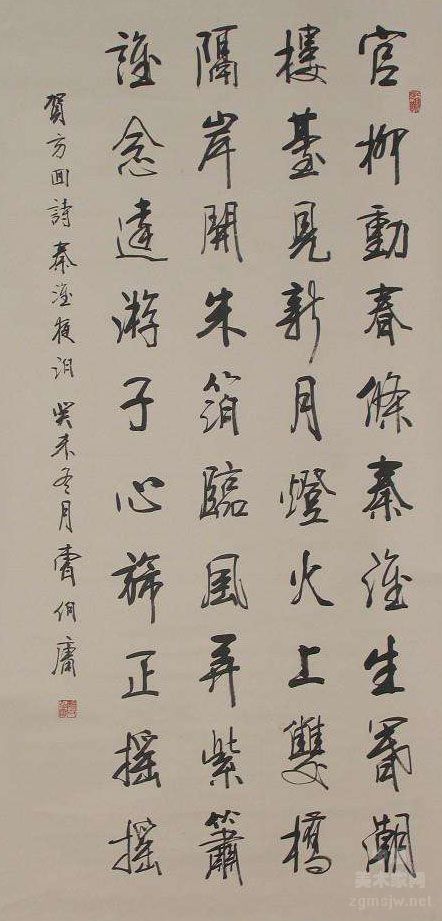 官柳動春條秦淮生暮潮
樓臺見新月燈火上雙橋
隔岸開朱箔臨風弄紫簫
誰念遠游子心旆正搖搖
賀方回詩秦淮夜泊 癸未冬月曹伯庸
美术家网
zgmsjw.net